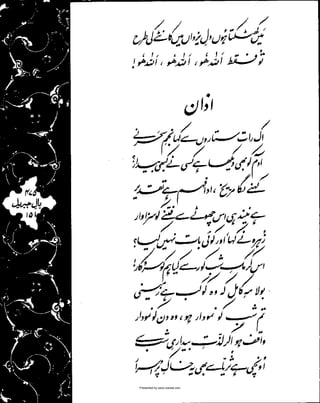 میں کھٹکتا ہوں دلِ یزداں میں کانٹے کی طرح
تُو فقط اللہ ھُو، اللہ ھُو، اللہ ھُو!
اذان
اک رات ستاروں سے کہا نجمِ سحر نے
آدم کو بھی دیکھا ہے کسی نے کبھی بیدار؟
کہنے لگا مریخ، ادا فہم ہے تقدیر
ہے نیند ہی اس چھوٹے سے فتنے کو سزاوار
زُہرہ نے کہا، اور کوئی بات نہیں کیا؟
اس کرمکِ شب کور سے کیا ہم کو سروکار!
بولا مہِ کامل کہ وہ کوکب ہے زمینی
تم شب کو نمودار ہو، وہ دن کو نمودار
واقف ہو اگر لذتِ بیداریِ شب سے
اونچی ہے ثریا سے بھی یہ خاکِ پُراسرار
۴۷۵
بالِ جبریل
۱۵۱
Presented by www.ziaraat.com